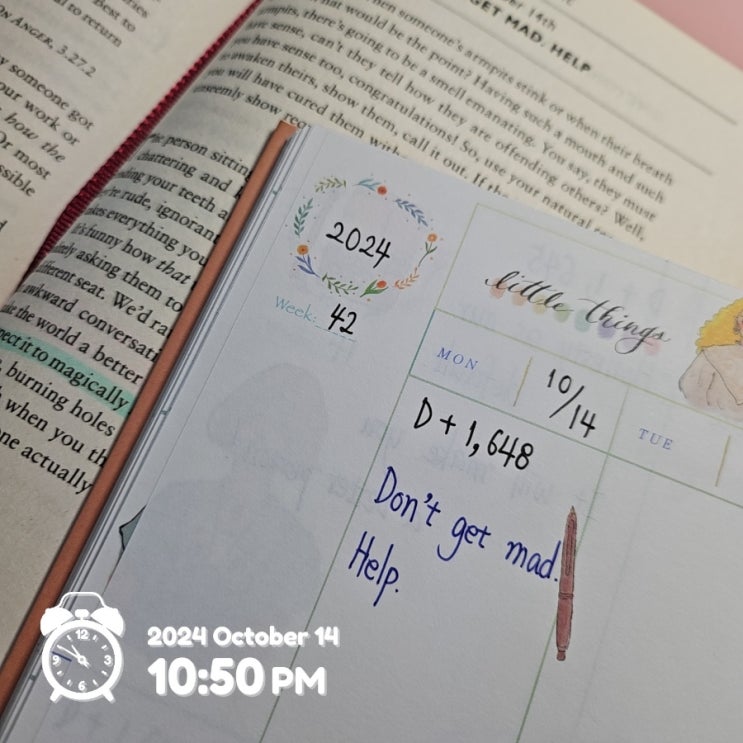 ANGER, 3.27.2
someone got
your work or
how the
Or most
to return
14th
GET MAD. HELP
when someone's armpits stink or when their breath
that would be the point? Having such a mouth and such
armpits, there's going to be a smell emanating. You say, they must
have sense, can't they tell how they are offending others? Well,
you have sense too, congratulations! So, use your natural
awaken theirs, show them, call it out. If the
you will have cured them with
unseemly show
the person sitting
chattering and
your teeth
rude, ignorant
makes everything you
It's funny how that
asking them to
different seat. We'd
awkward
the world a better
expect it to magically
burning holes
when you
one actually
2024
Week: 42
little things
MON 10/14 TUE
D+1,648
Don't get mad.
Help.
12
9 3
6
2024 October 14
10:50 PM